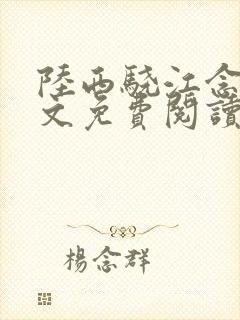 陸西驍江念
文免費閱讀
楊念群